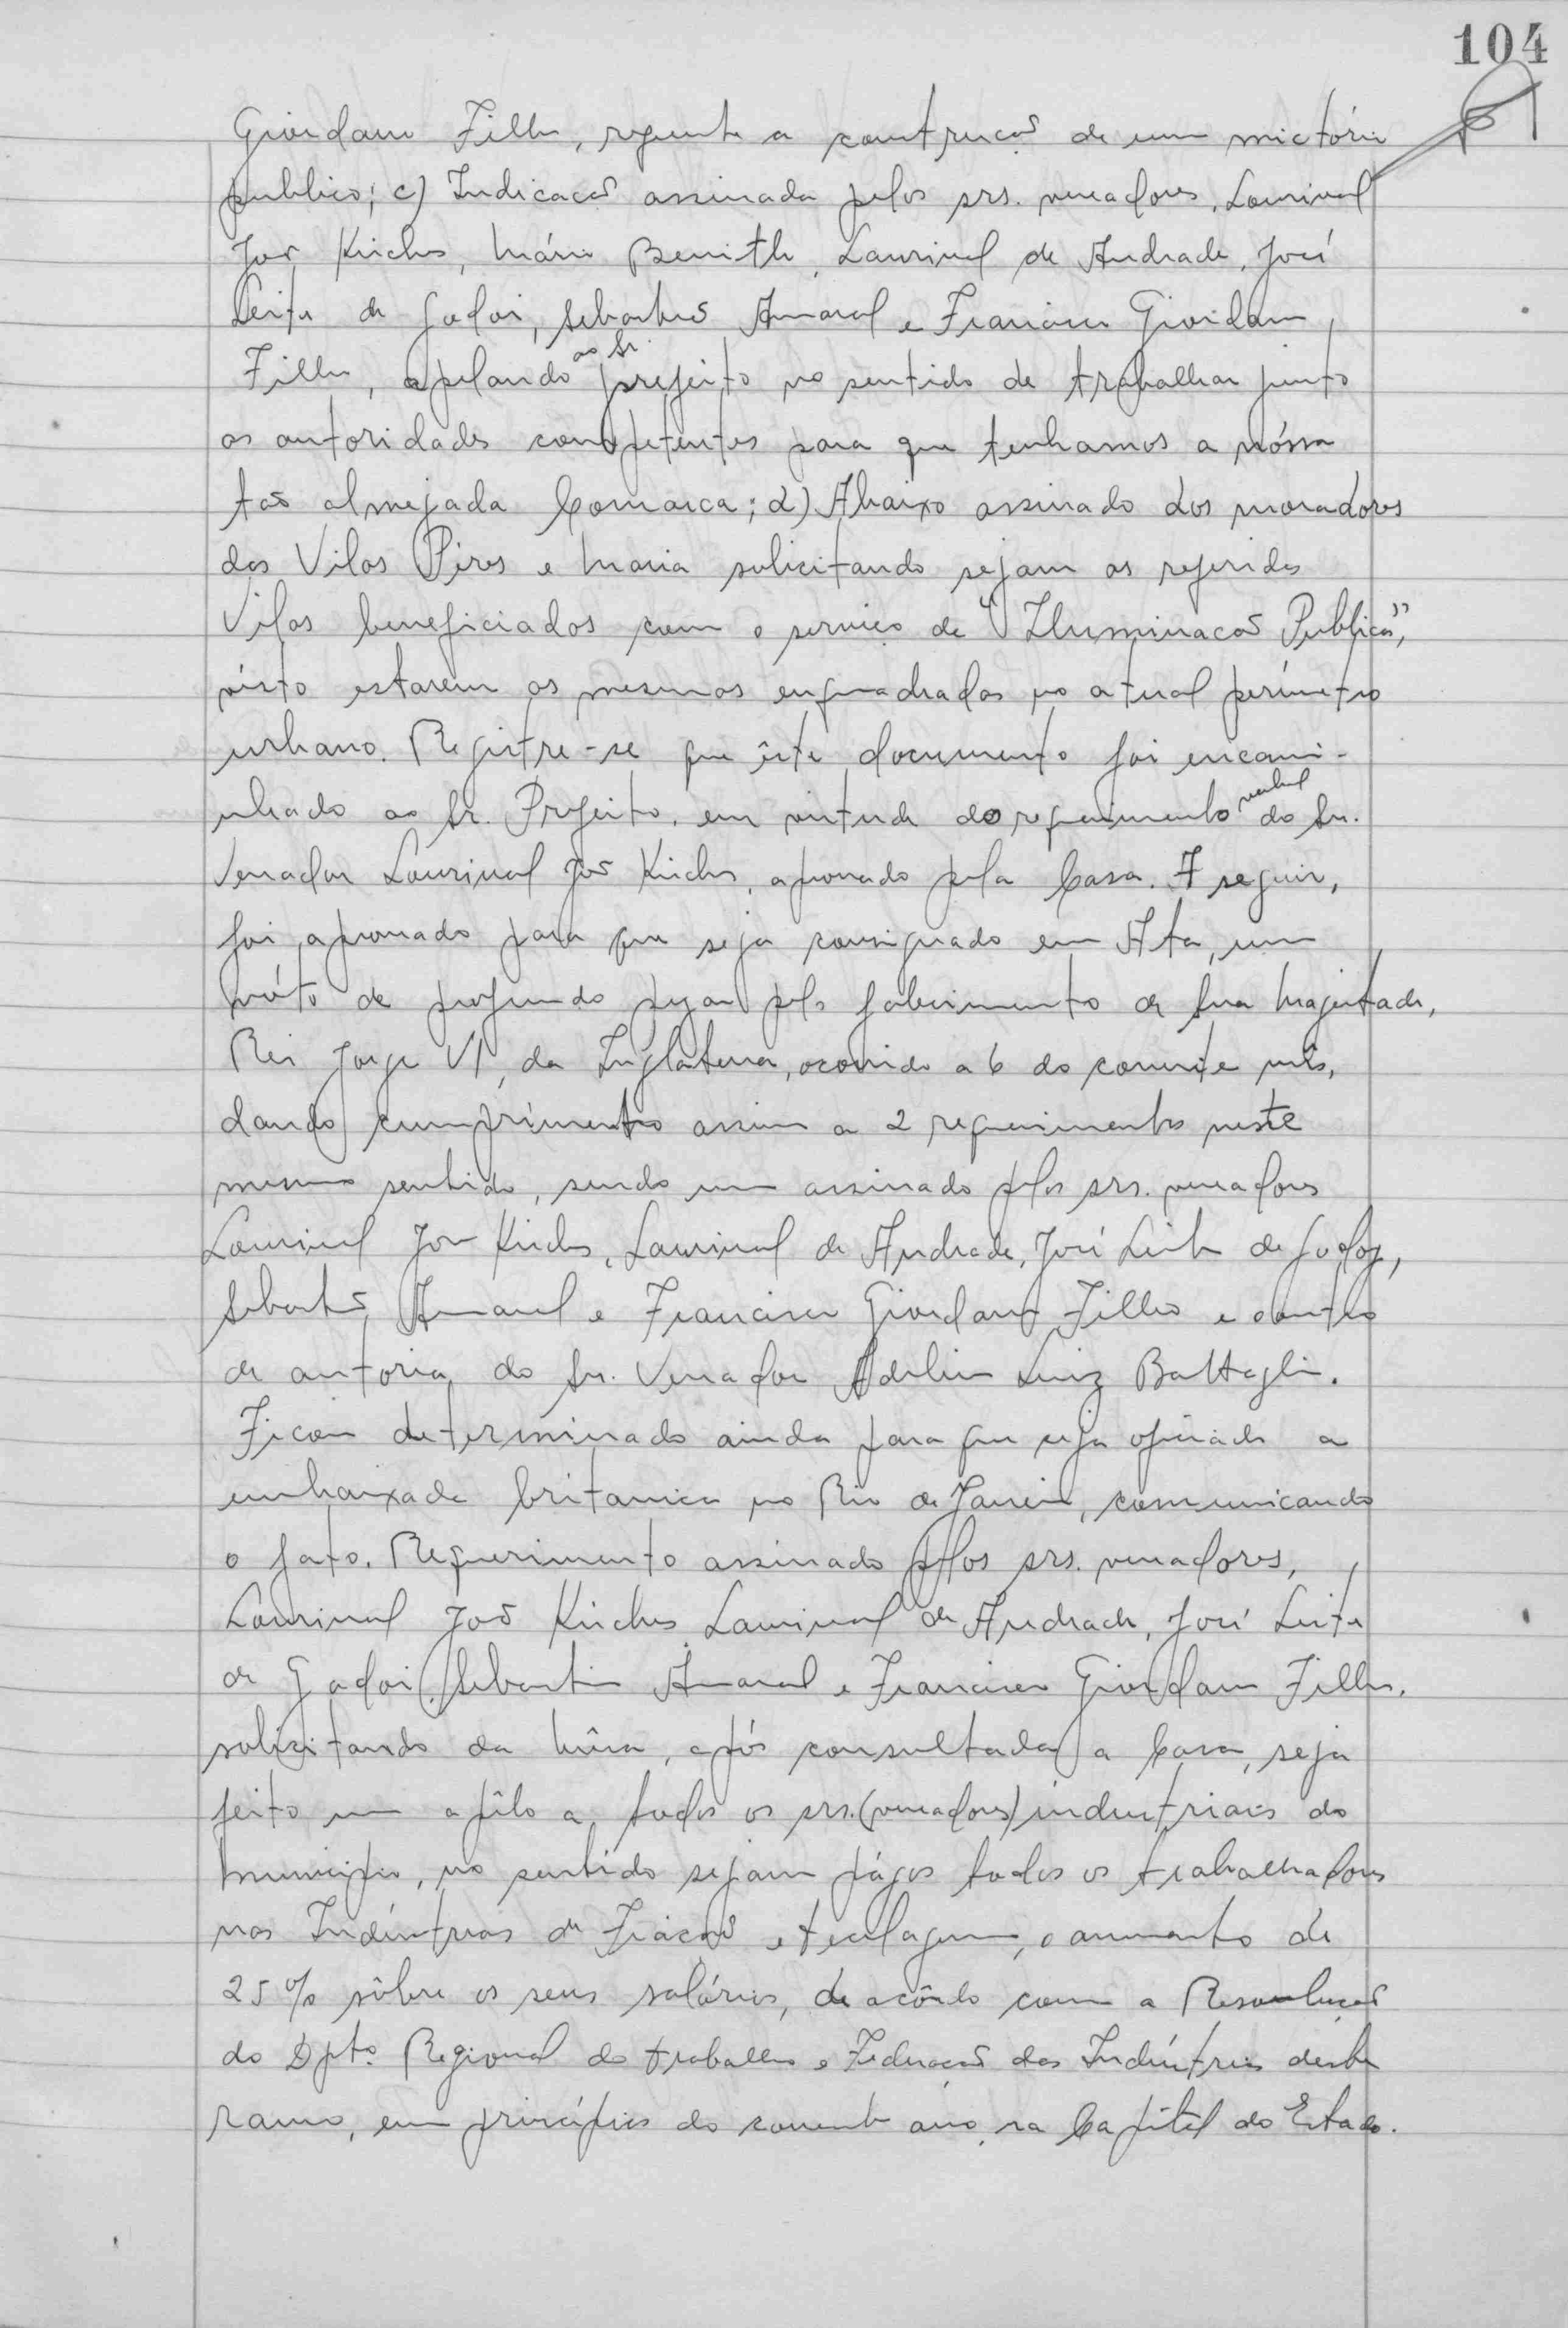 104
Giordano Filho, referente a construcaõ de um mictório
publico; c) Indicacaõ assinada pelos srs. vereadores, Lourival
Joaõ Kirches, Mário Benith, Laurival de Andrade, José
Leite de Godoi, Sebastiaõ Amaral e Francisco Giordano
Filho, apelando ao Sr. prefeito no sentido de trabalhar junto
as autoridades competentes para que tenhamos a nóssa
taõ almejada Comarca; d) Abaixo assinado dos moradores
das Vilas Pires e Maria solicitando sejam as referidas
Vilas beneficiadas com o serviço de "Iluminacaõ Publica",
visto estarem as mesmas enquadradas no atual perímetro
urbano. Registre-se que êste documento foi encami-
nhado ao Sr. Prefeito, em virtude do requerimento verbal do Sr.
Vereador Lourival Joaõ Kirches, aprovado pela Casa. A seguir,
foi aprovado para que seja consignado em Ata, um
vóto de profundo pezar pelo falecimento de Sua Magestade,
Rei Jorge VI, da Inglaterra, ocorrido a 6 do corrente mês,
dando cumprimento assim a 2 requerimentos neste
mesmo sentido, sendo um assinado pelos srs. vereadores
Lourival Joaõ Kirches, Laurival de Andrade, José Leite de Godoy,
Sebastiaõ Amaral e Francisco Giordano Filho e outro
de autoria do Sr. Vereador Adelino Luiz Battaglin.
Ficou determinado ainda para que seja oficiado a
embaixada britanica no Rio de Janeiro, comunicando
o fato. Requerimento assinado pelos srs. vereadores,
Lourival Joaõ Kirches, Laurival de Andrade, José Leite
de Godoi, Sebastiaõ Amaral e Francisco Giordano Filho,
solicitando da Mêsa, após consultada a Casa, seja
feito um apêlo a todos os srs. (vereadores) industriais do
Municipio, no sentido sejam págos todos os trabalhadores
nas Indústrias de Fiacaõ e tecelagem, o aumento de
25% sôbre os seus salários, de acôrdo com a Resolucaõ
do Dpto. Regional do trabalho e Federacaõ das Indústrias deste
ramo, em princípios do corrente ano, na Capital do Estado.